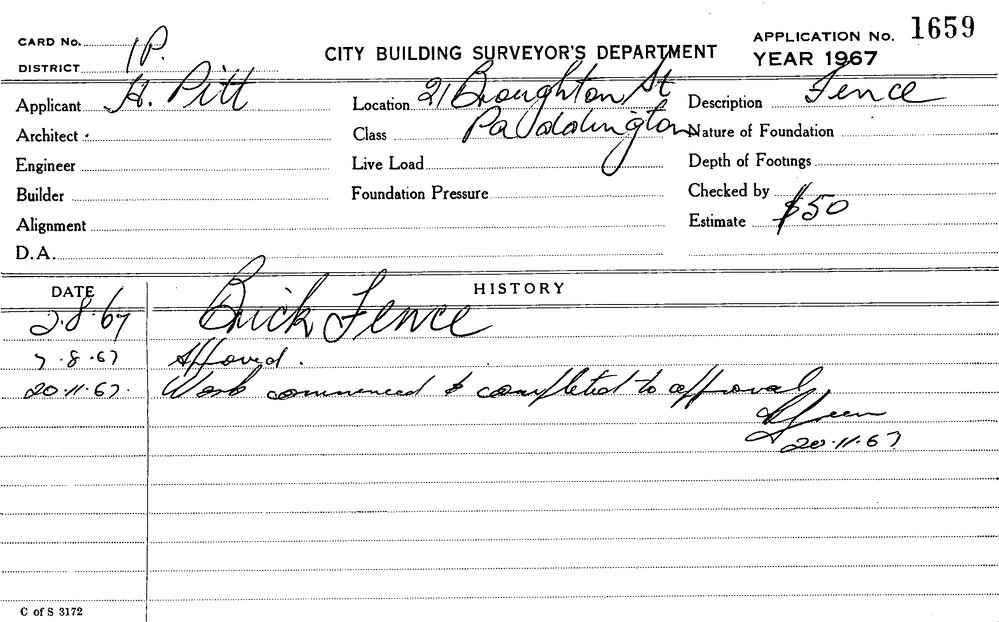 CARD No. 1P.
DISTRICT
CITY BUILDING SURVEYOR'S DEPARTMENT
APPLICATION No. 1659
YEAR 1967
Applicant H. Pitt
Location 21 Broughton St
Description Fence
Architect
Class Paddington
Nature of Foundation
Engineer
Live Load
Depth of Footings
Builder
Foundation Pressure
Checked by
Alignment
Estimate $50
D.A.
DATE
HISTORY
2.8.67 Brick Fence
7.8.67 Approved.
20.11.67. Work commenced & completed to approval
20.11.67
C of S 3172